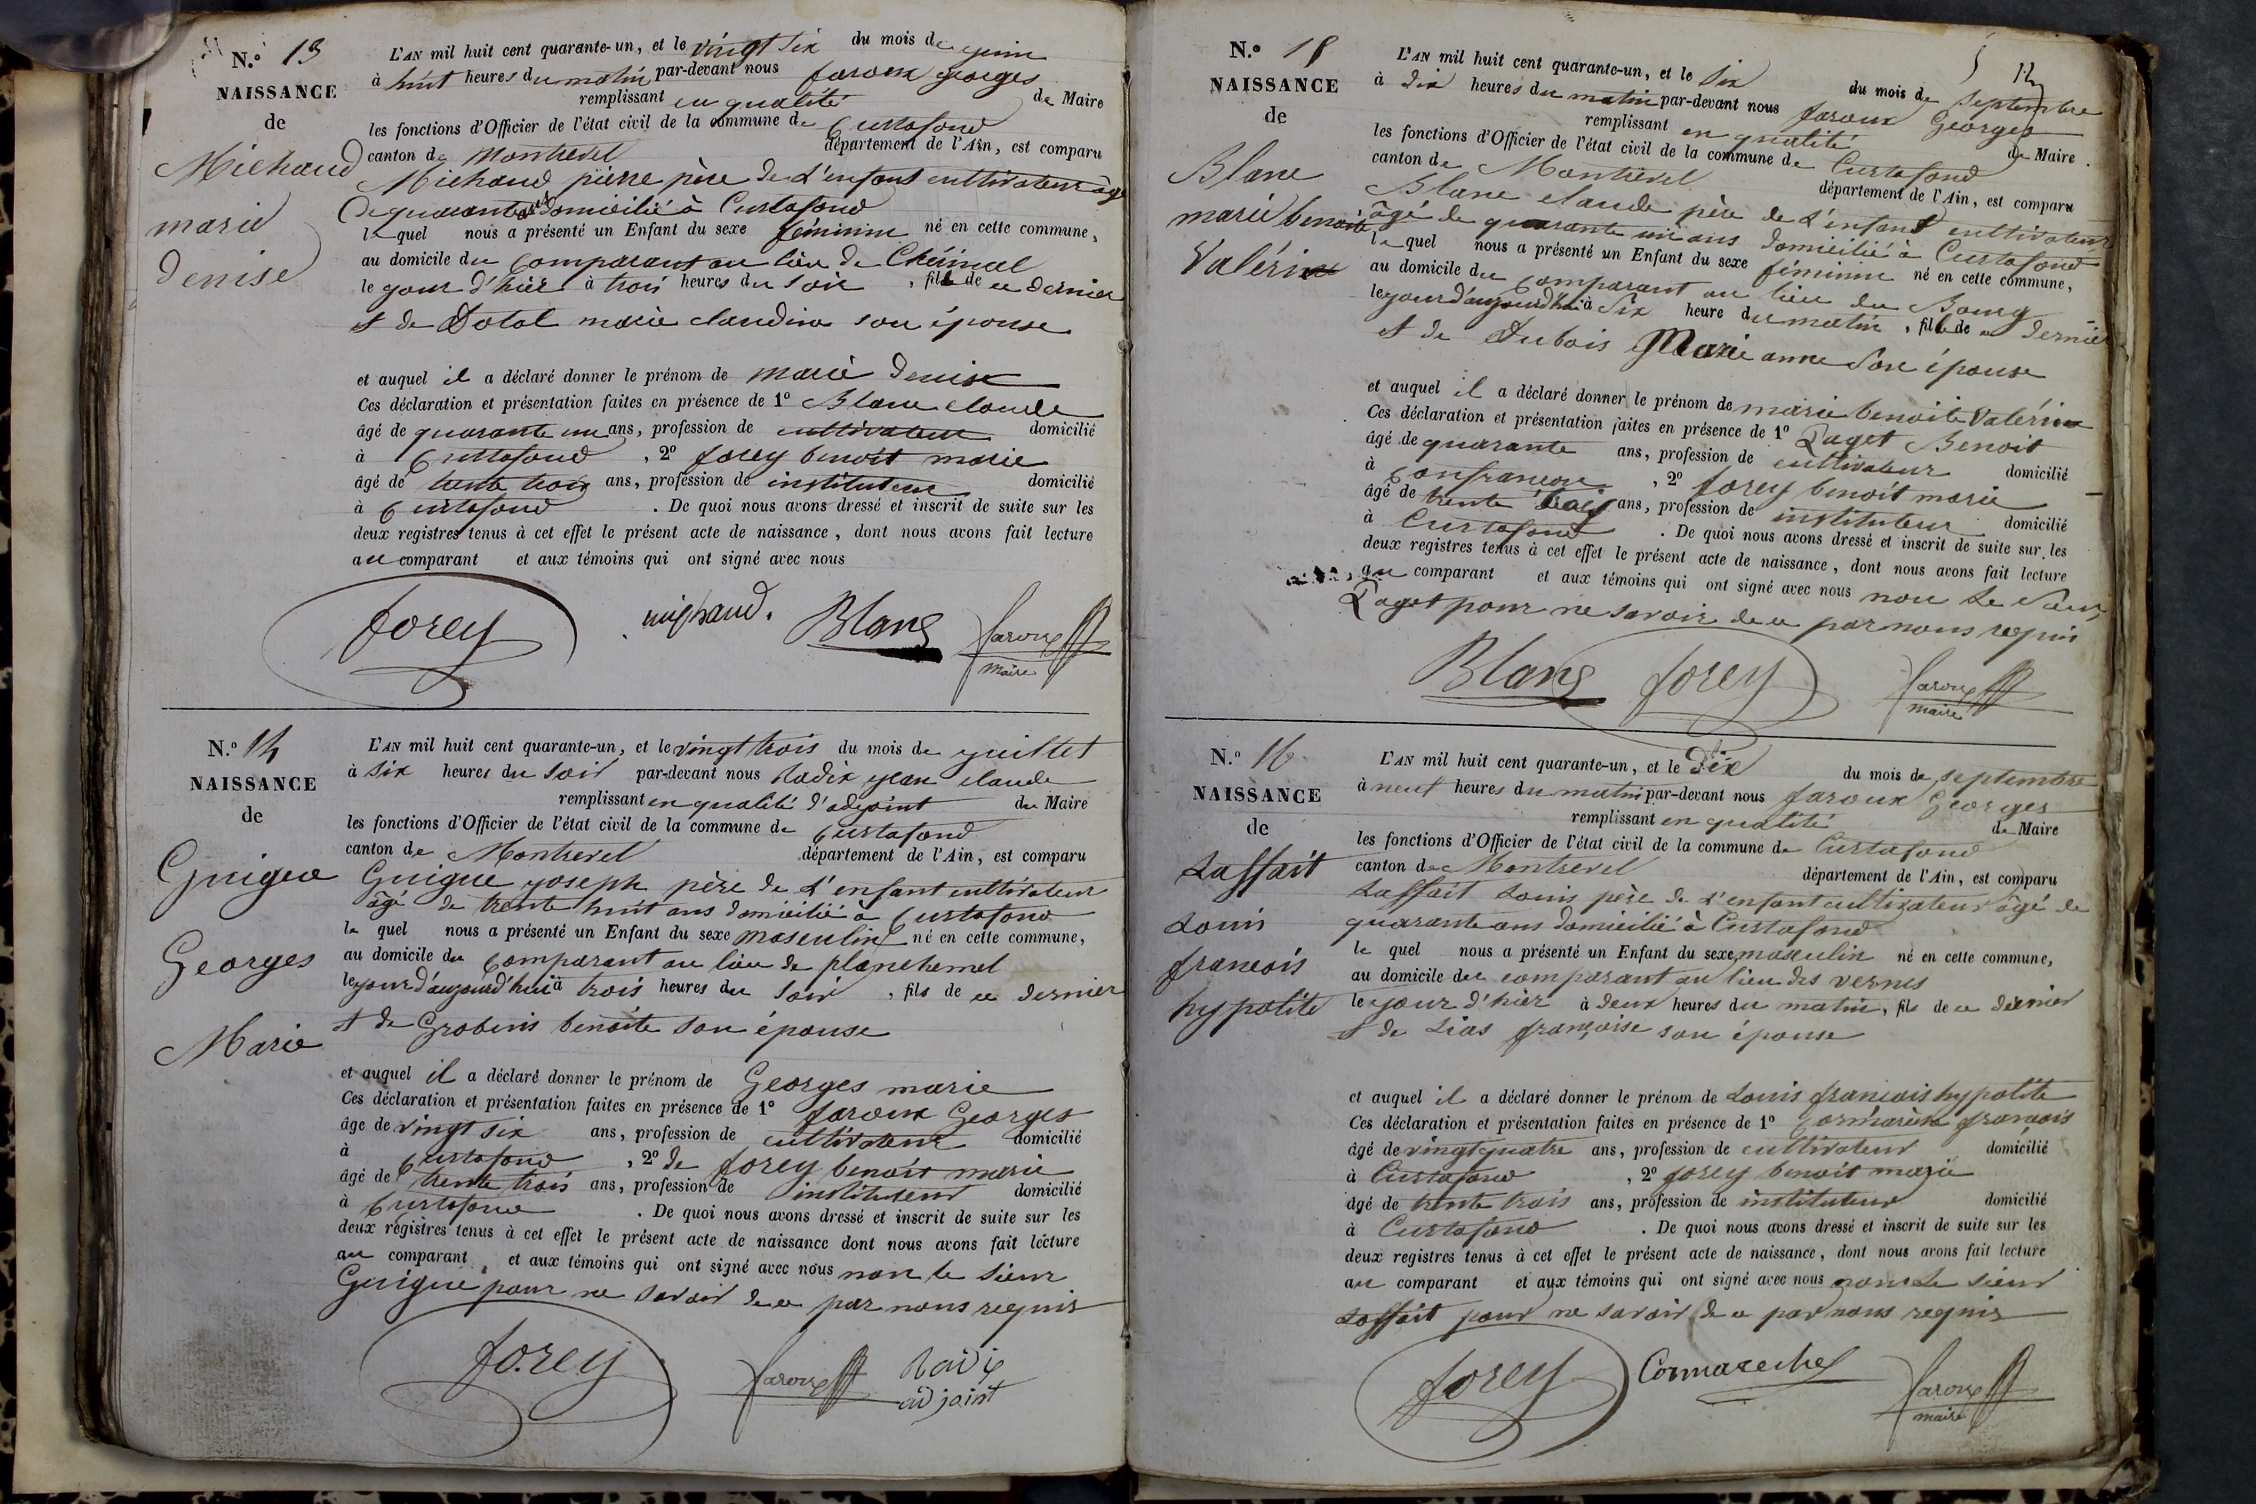 N.º 13
NAISSANCE
de
Michaud
marie
denise
L'AN mil huit cent quarante-un, et le vingt six du mois de juin
à huit heures du matin par-devant nous faroux georges
remplissant en qualité de Maire
les fonctions d'Officier de l'état civil de la commune de Curtafond
canton de Montrevel département de l'Ain, est comparu
Michaud pierre père de L'enfant cultivateur âgé
de quarante ans domicilié à Curtafond
le quel nous a présenté un Enfant du sexe féminin né en cette commune,
au domicile du comparant au lieu de
le jour d'hier à trois heures du soir, fille de ce dernier
et de Dotal marie claudine son épouse
et auquel il a déclaré donner le prénom de marie denise
Ces déclaration et présentation faites en présence de 1º Blanc claude
âgé de quarante un ans, profession de cultivateur domicilié
à Curtafond, 2º forey benoit marie
âgé de trente trois ans, profession de instituteur domicilié
à Curtafond. De quoi nous avons dressé et inscrit de suite sur les
deux registres tenus à cet effet le présent acte de naissance, dont nous avons fait lecture
au comparant et aux témoins qui ont signé avec nous
forey michaud. Blanc faroux
maire
N.º 14
NAISSANCE
de
Guigue
Georges
Marie
L'AN mil huit cent quarante-un, et le vingt trois du mois de juillet
à six heures du soir par-devant nous Radix jean claude
remplissant en qualité d'adjoint du Maire
les fonctions d'Officier de l'état civil de la commune de Curtafond
canton de Montrevel département de l'Ain, est comparu
Guigue joseph père de L'enfant cultivateur
âgé de trente huit ans domicilié à Curtafond
le quel nous a présenté un Enfant du sexe masculin né en cette commune,
au domicile du comparant au lieu de planchemel
le jour d'aujourd'hui à trois heures du soir, fils de ce dernier
et de Grobins benoite son épouse
et auquel il a déclaré donner le prénom de Georges marie
Ces déclaration et présentation faites en présence de 1º faroux Georges
âgé de vingt six ans, profession de cultivateur domicilié
à Curtafond, 2º de forey benoit marie
âgé de trente trois ans, profession de instituteur domicilié
à Curtafond. De quoi nous avons dressé et inscrit de suite sur les
deux registres tenus à cet effet le présent acte de naissance dont nous avons fait lecture
au comparant, et aux témoins qui ont signé avec nous non le sieur
Guigue pour ne savoir de ce par nous requis
forey faroux Radix
adjoint
N.º 15
NAISSANCE
de
Blanc
marie benoite
Valérine
L'AN mil huit cent quarante-un, et le six du mois de septembre
à dix heures du matin par-devant nous faroux Georges
remplissant en qualité de Maire
les fonctions d'Officier de l'état civil de la commune de Curtafond
canton de Montrevel département de l'Ain, est comparu
Blanc claude père de L'enfant cultivateur
âgé de quarante un ans domicilié à Curtafond
le quel nous a présenté un Enfant du sexe féminin né en cette commune,
au domicile du comparant au lieu du Bourg
le jour d'aujourd'hui à six heure du matin, fille de ce dernier
et de Dubois Marie anne son épouse
et auquel il a déclaré donner le prénom de marie benoite Valérine
Ces déclaration et présentation faites en présence de 1º Paget Benoit
âgé de quarante ans, profession de cultivateur domicilié
à confrancon, 2º forey benoit marie
âgé de trente trois ans, profession de instituteur domicilié
à Curtafond. De quoi nous avons dressé et inscrit de suite sur les
deux registres tenus à cet effet le présent acte de naissance, dont nous avons fait lecture
au comparant et aux témoins qui ont signé avec nous non Le sieur
Paget pour ne savoir de ce par nous requis
Blanc forey faroux
maire
N.º 16
NAISSANCE
de
Laffait
Louis
francois
hypolite
L'AN mil huit cent quarante-un, et le Dix du mois de septembre
à neuf heures du matin par-devant nous faroux Georges
remplissant en qualité de Maire
les fonctions d'Officier de l'état civil de la commune de Curtafond
canton de Montrevel département de l'Ain, est comparu
Laffait Louis père de L'enfant cultivateur âgé de
quarante ans domicilié à Curtafond
le quel nous a présenté un Enfant du sexe masculin né en cette commune,
au domicile du comparant au lieu des vernes
le jour d'hier à deux heures du matin, fils de ce dernier
et de Lias françoise son épouse
et auquel il a déclaré donner le prénom de Louis francois hypolite
Ces déclaration et présentation faites en présence de 1º Cormarèche francois
âgé de vingt quatre ans, profession de cultivateur domicilié
à Curtafond, 2º forey benoit marie
âgé de trente trois ans, profession de instituteur domicilié
à Curtafond. De quoi nous avons dressé et inscrit de suite sur les
deux registres tenus à cet effet le présent acte de naissance, dont nous avons fait lecture
au comparant et aux témoins qui ont signé avec nous non Le sieur
Laffait pour ne savoir de ce par nous requis
forey Cormareche faroux
maire